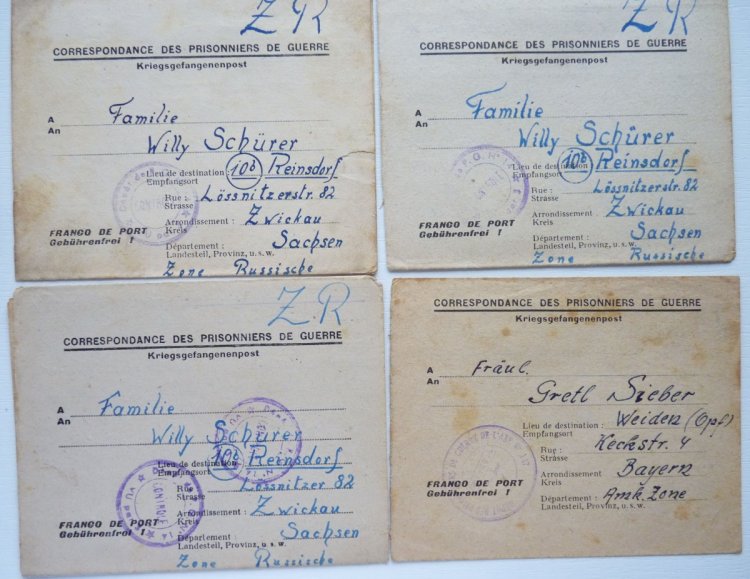 Z R
CORRESPONDANCE DES PRISONNIERS DE GUERRE
Kriegsgefangenenpost
A Familie
An
Willy Schürer
Lieu de destination : 10b Reinsdorf
Empfangsort
Rue : Lössnitzerstr. 82
Strasse
Arrondissement : Zwickau
Kreis
FRANCO DE PORT
Gebührenfrei !
Département : Sachsen
Landesteil, Provinz, u. s. w.
Zone Russische
Z R
CORRESPONDANCE DES PRISONNIERS DE GUERRE
Kriegsgefangenenpost
A Familie
An
Willy Schürer
Lieu de destination 10b Reinsdorf
Empfangsort
Rue : Lössnitzerstr. 82
Strasse
Arrondissement : Zwickau
Kreis
FRANCO DE PORT
Gebührenfrei !
Département : Sachsen
Landesteil, Provinz, u. s. w.
Zone Russische
Z R
CORRESPONDANCE DES PRISONNIERS DE GUERRE
Kriegsgefangenenpost
A Familie
An
Willy Schürer
Lieu de destination 10b Reinsdorf
Empfangsort
Rue : Lössnitzer 82
Strasse
Arrondissement : Zwickau
Kreis
FRANCO DE PORT
Gebührenfrei !
Département : Sachsen
Landesteil, Provinz, u. s. w.
Zone Russische
CORRESPONDANCE DES PRISONNIERS DE GUERRE
Kriegsgefangenenpost
A Fräul.
An
Gretl Sieber
Lieu de destination : Weiden (Opf)
Empfangsort
Rue : Keckstr. 4
Strasse
Arrondissement Bayern
Kreis
FRANCO DE PORT
Gebührenfrei !
Département : Amk. Zone
Landesteil, Provinz, u. s. w.